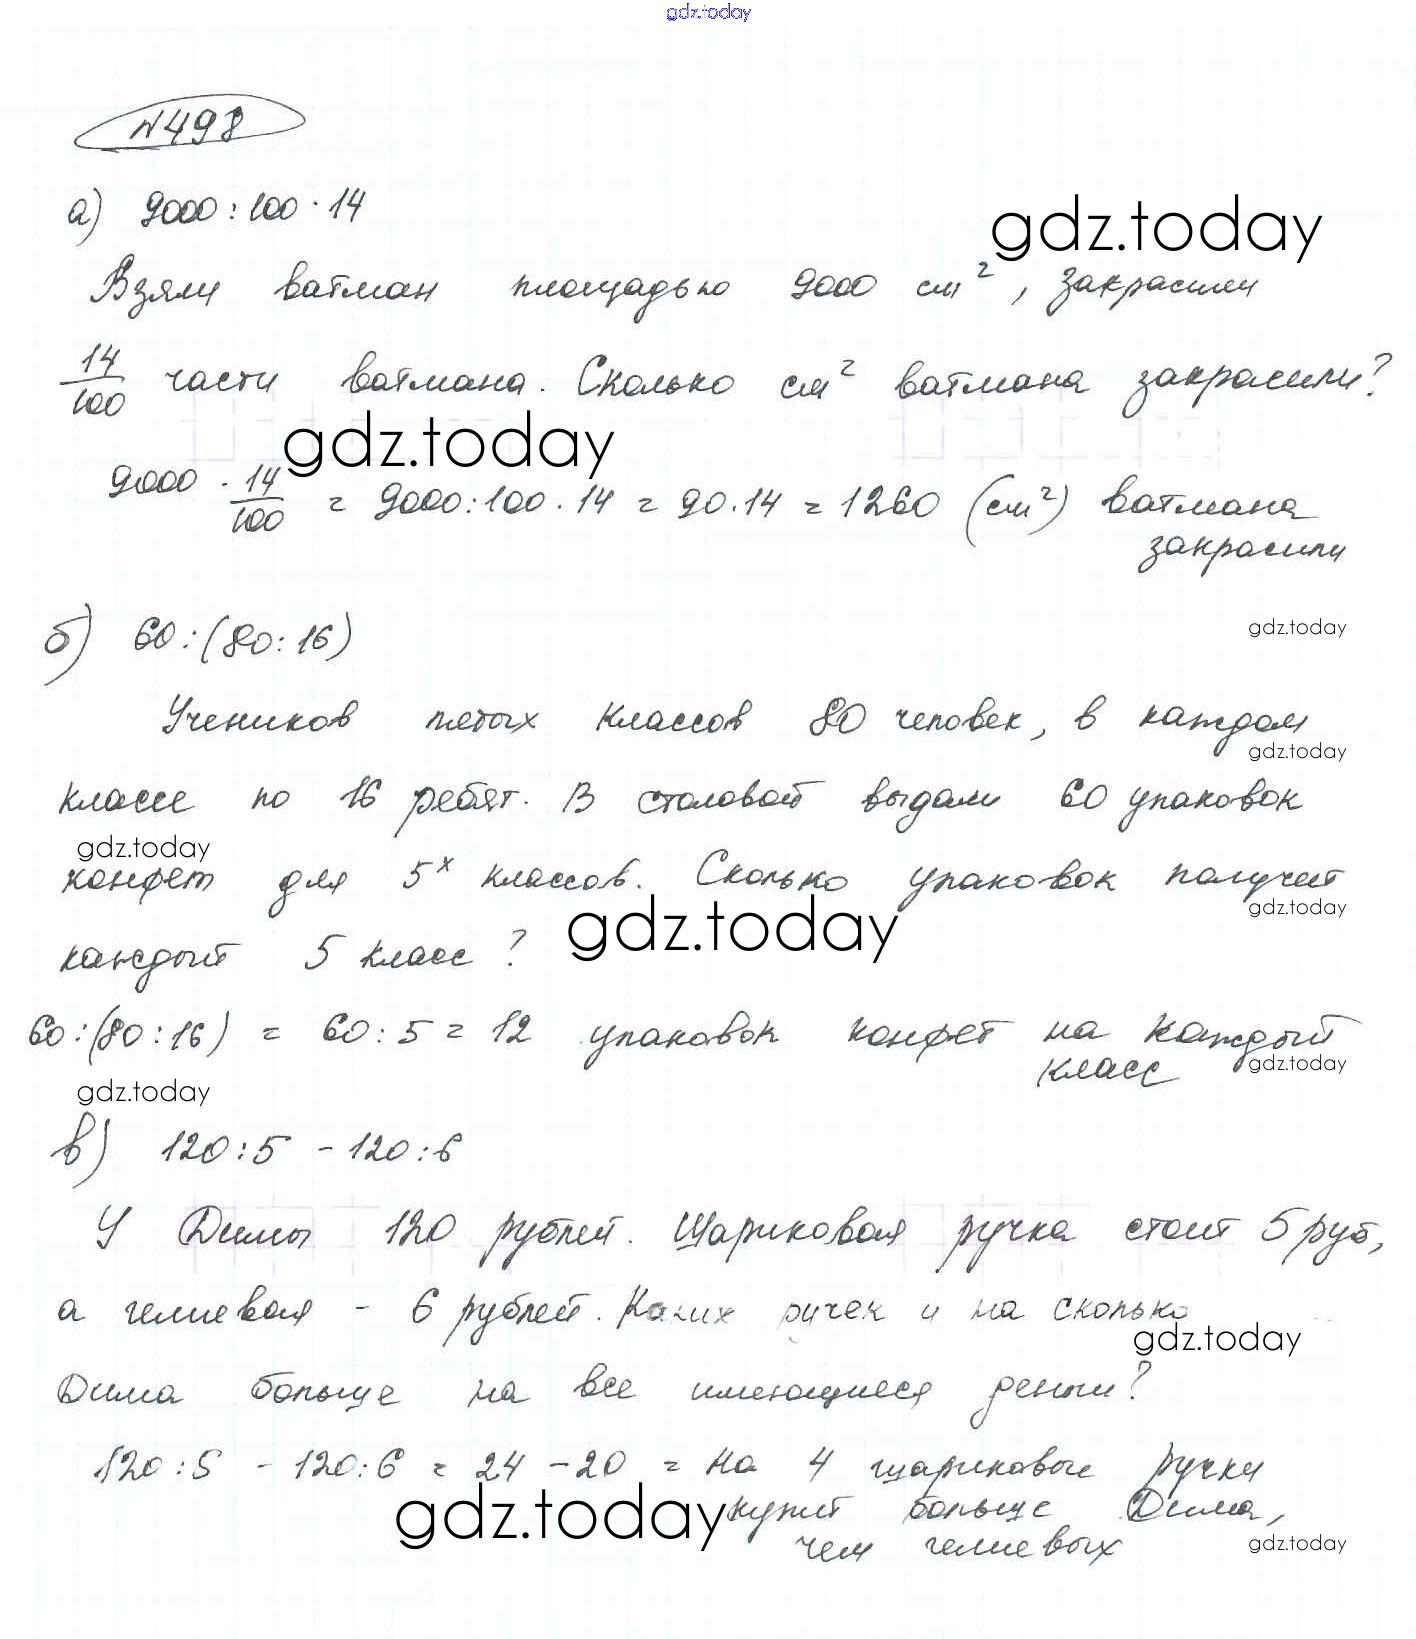 gdz.today
№498
а) 9000:100·14
gdz.today
Взяли ватман площадью 9000 см², закрасили
14/100 части ватмана. Сколько см² ватмана закрасили?
gdz.today
9000 · 14/100 = 9000:100·14 = 90·14 = 1260 (см²) ватмана
закрасили
б) 60:(80:16)
gdz.today
Учеников пятых классов 80 человек, в каждом
gdz.today
классе по 16 ребят. В столовой выдали 60 упаковок
gdz.today
конфет для 5х классов. Сколько упаковок получит
gdz.today
gdz.today
каждый 5 класс?
60:(80:16) = 60:5 = 12 упаковок конфет на каждый
gdz.today
класс
gdz.today
в) 120:5 - 120:6
У Димы 120 рублей. Шариковая ручка стоит 5 руб,
а гелиевая - 6 рублей. Каких ручек и на сколько
gdz.today
Дима больше на все имеющиеся деньги?
120:5 - 120:6 = 24 - 20 = на 4 шариковые ручки
gdz.today
купит больше Дима,
чем гелиевых
gdz.today